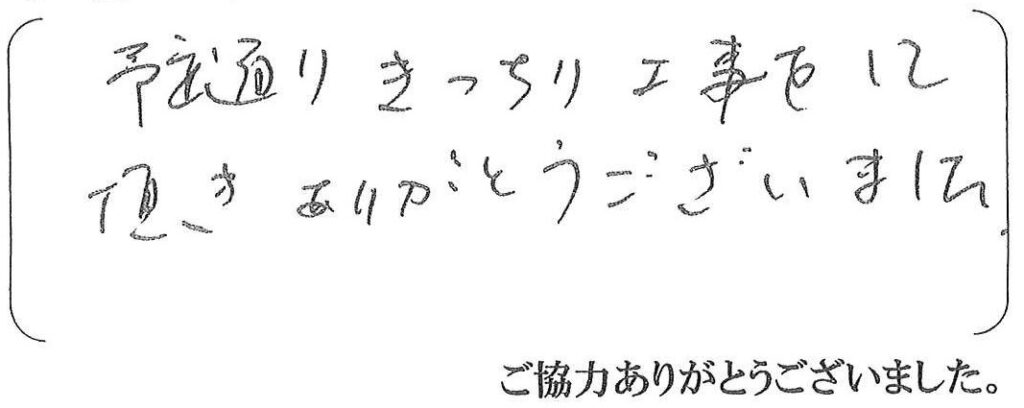 予定通りきっちり工事をして
頂きありがとうございました
ご協力ありがとうございました。